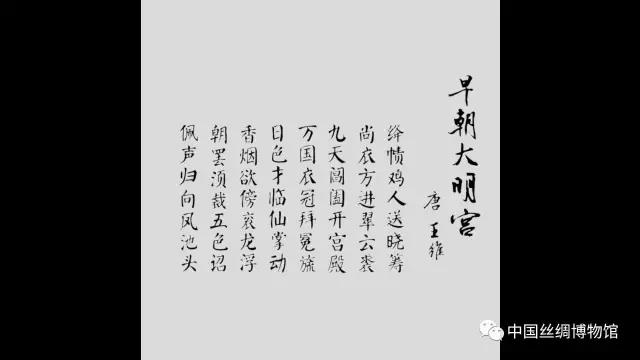 早朝大明宫
唐 王维
绛帻鸡人送晓筹
尚衣方进翠云裘
九天阊阖开宫殿
万国衣冠拜冕旒
日色才临仙掌动
香烟欲傍衮龙浮
朝罢须裁五色诏
佩声归向凤池头
中国丝绸博物馆